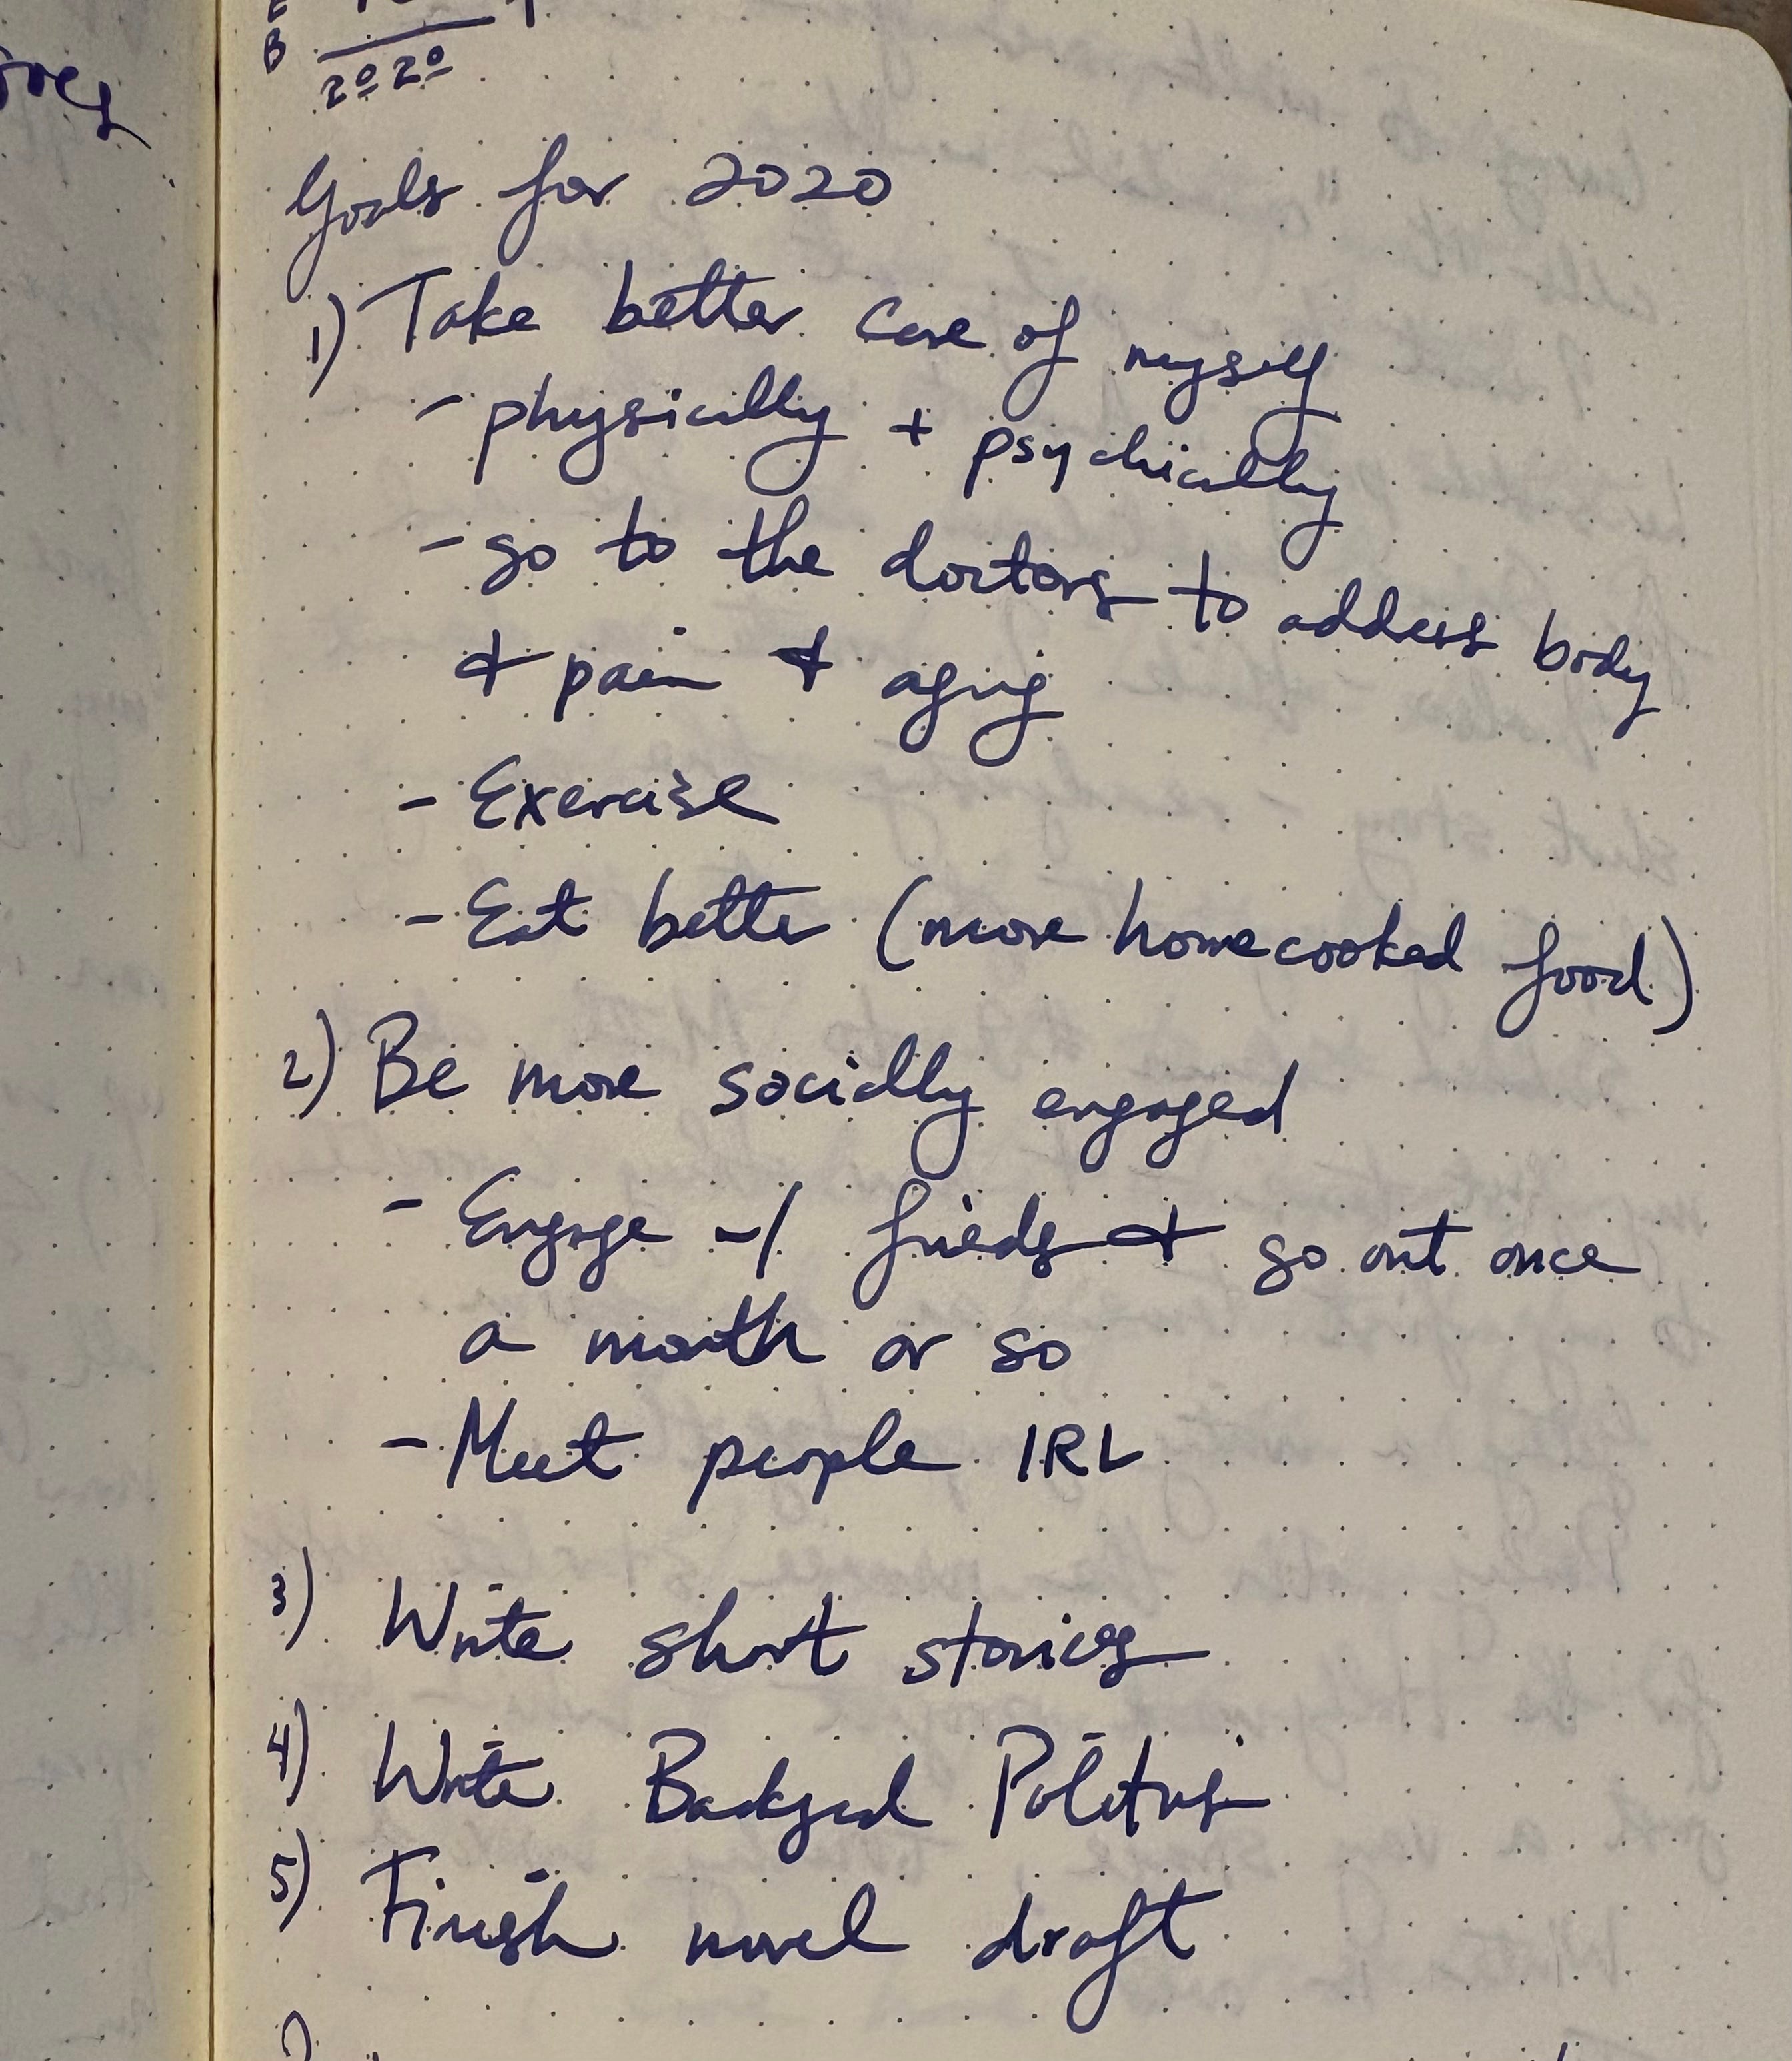 B
2020
Goals for 2020
1) Take better care of myself
- physically + psychically
- go to the doctors to address body
+ pain + aging
- Exercise
- Eat better (more homecooked food)
2) Be more socially engaged
- Engage w/ friends + go out once
a month or so
- Meet people IRL
3) Write short stories
4) Write Backyard Politics
5) Finish novel draft